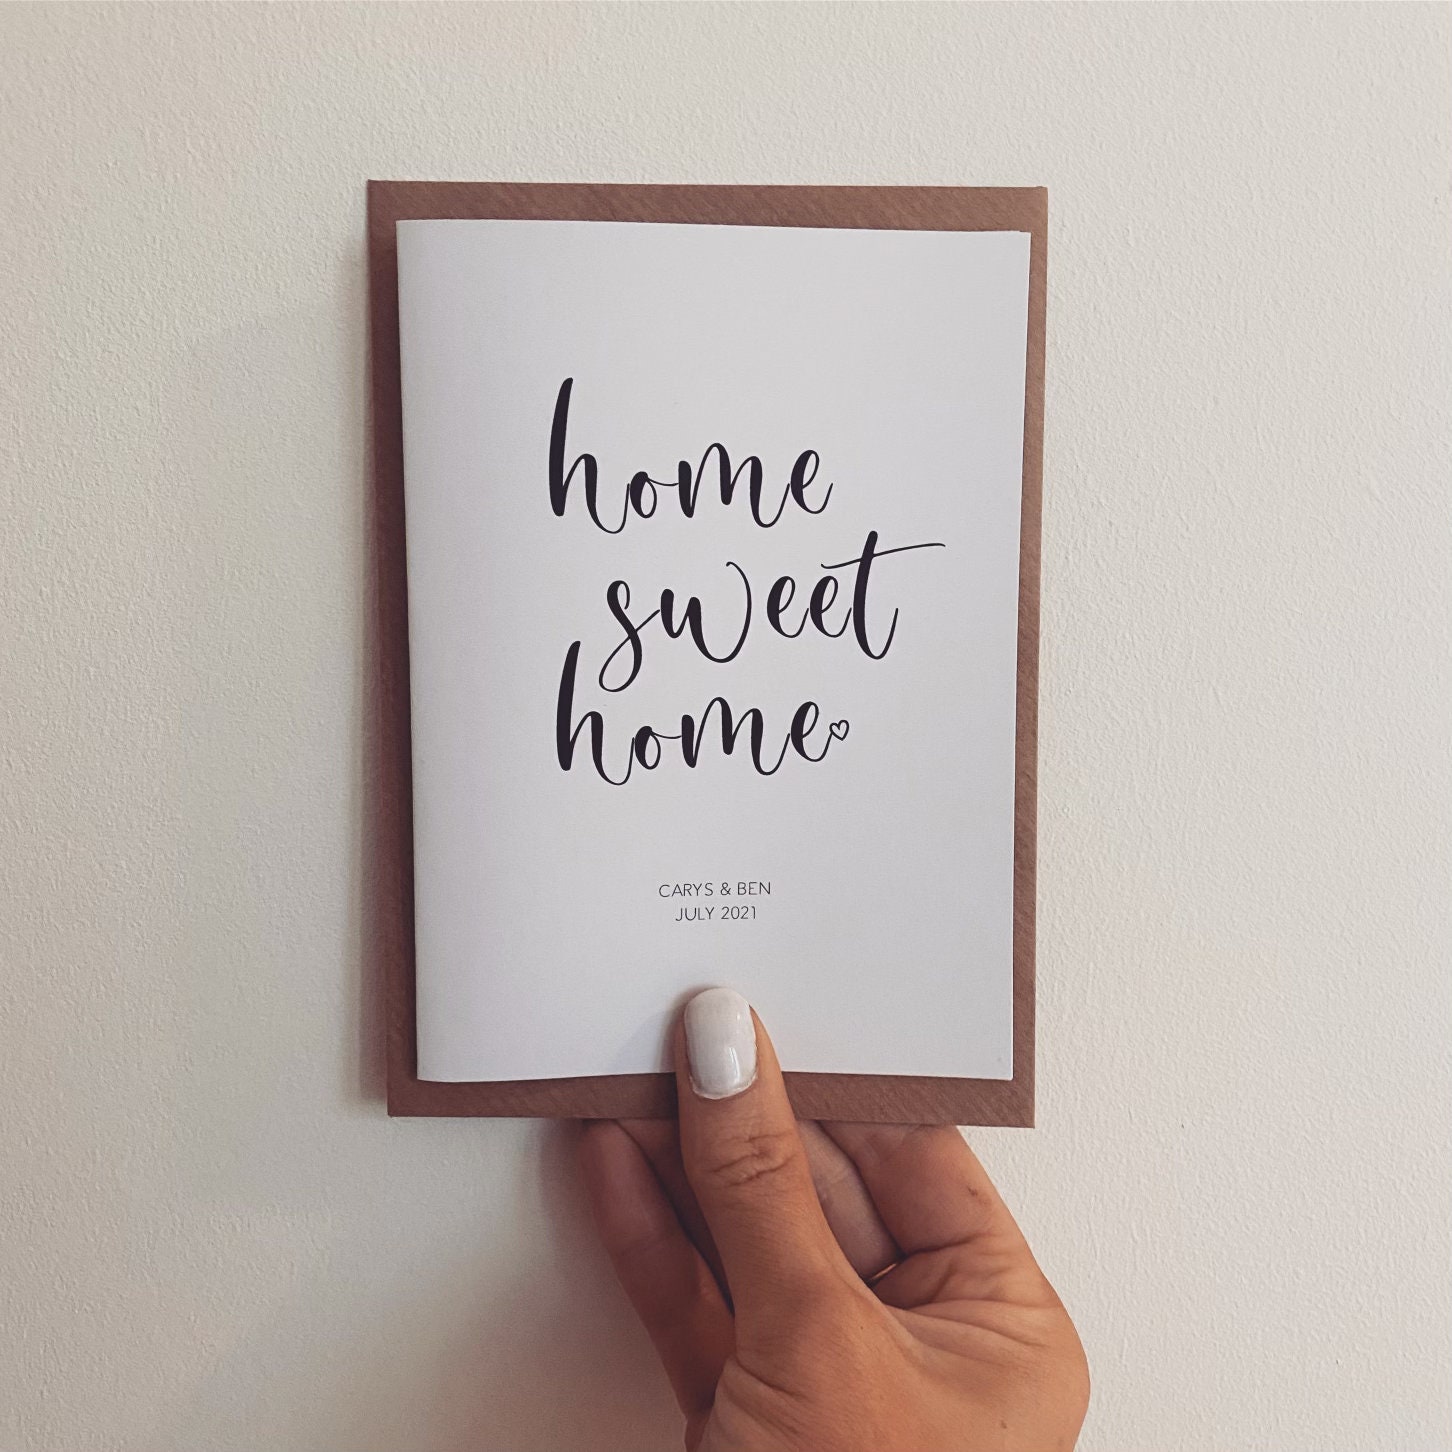 home
sweet
home
CARYS & BEN
JULY 2021